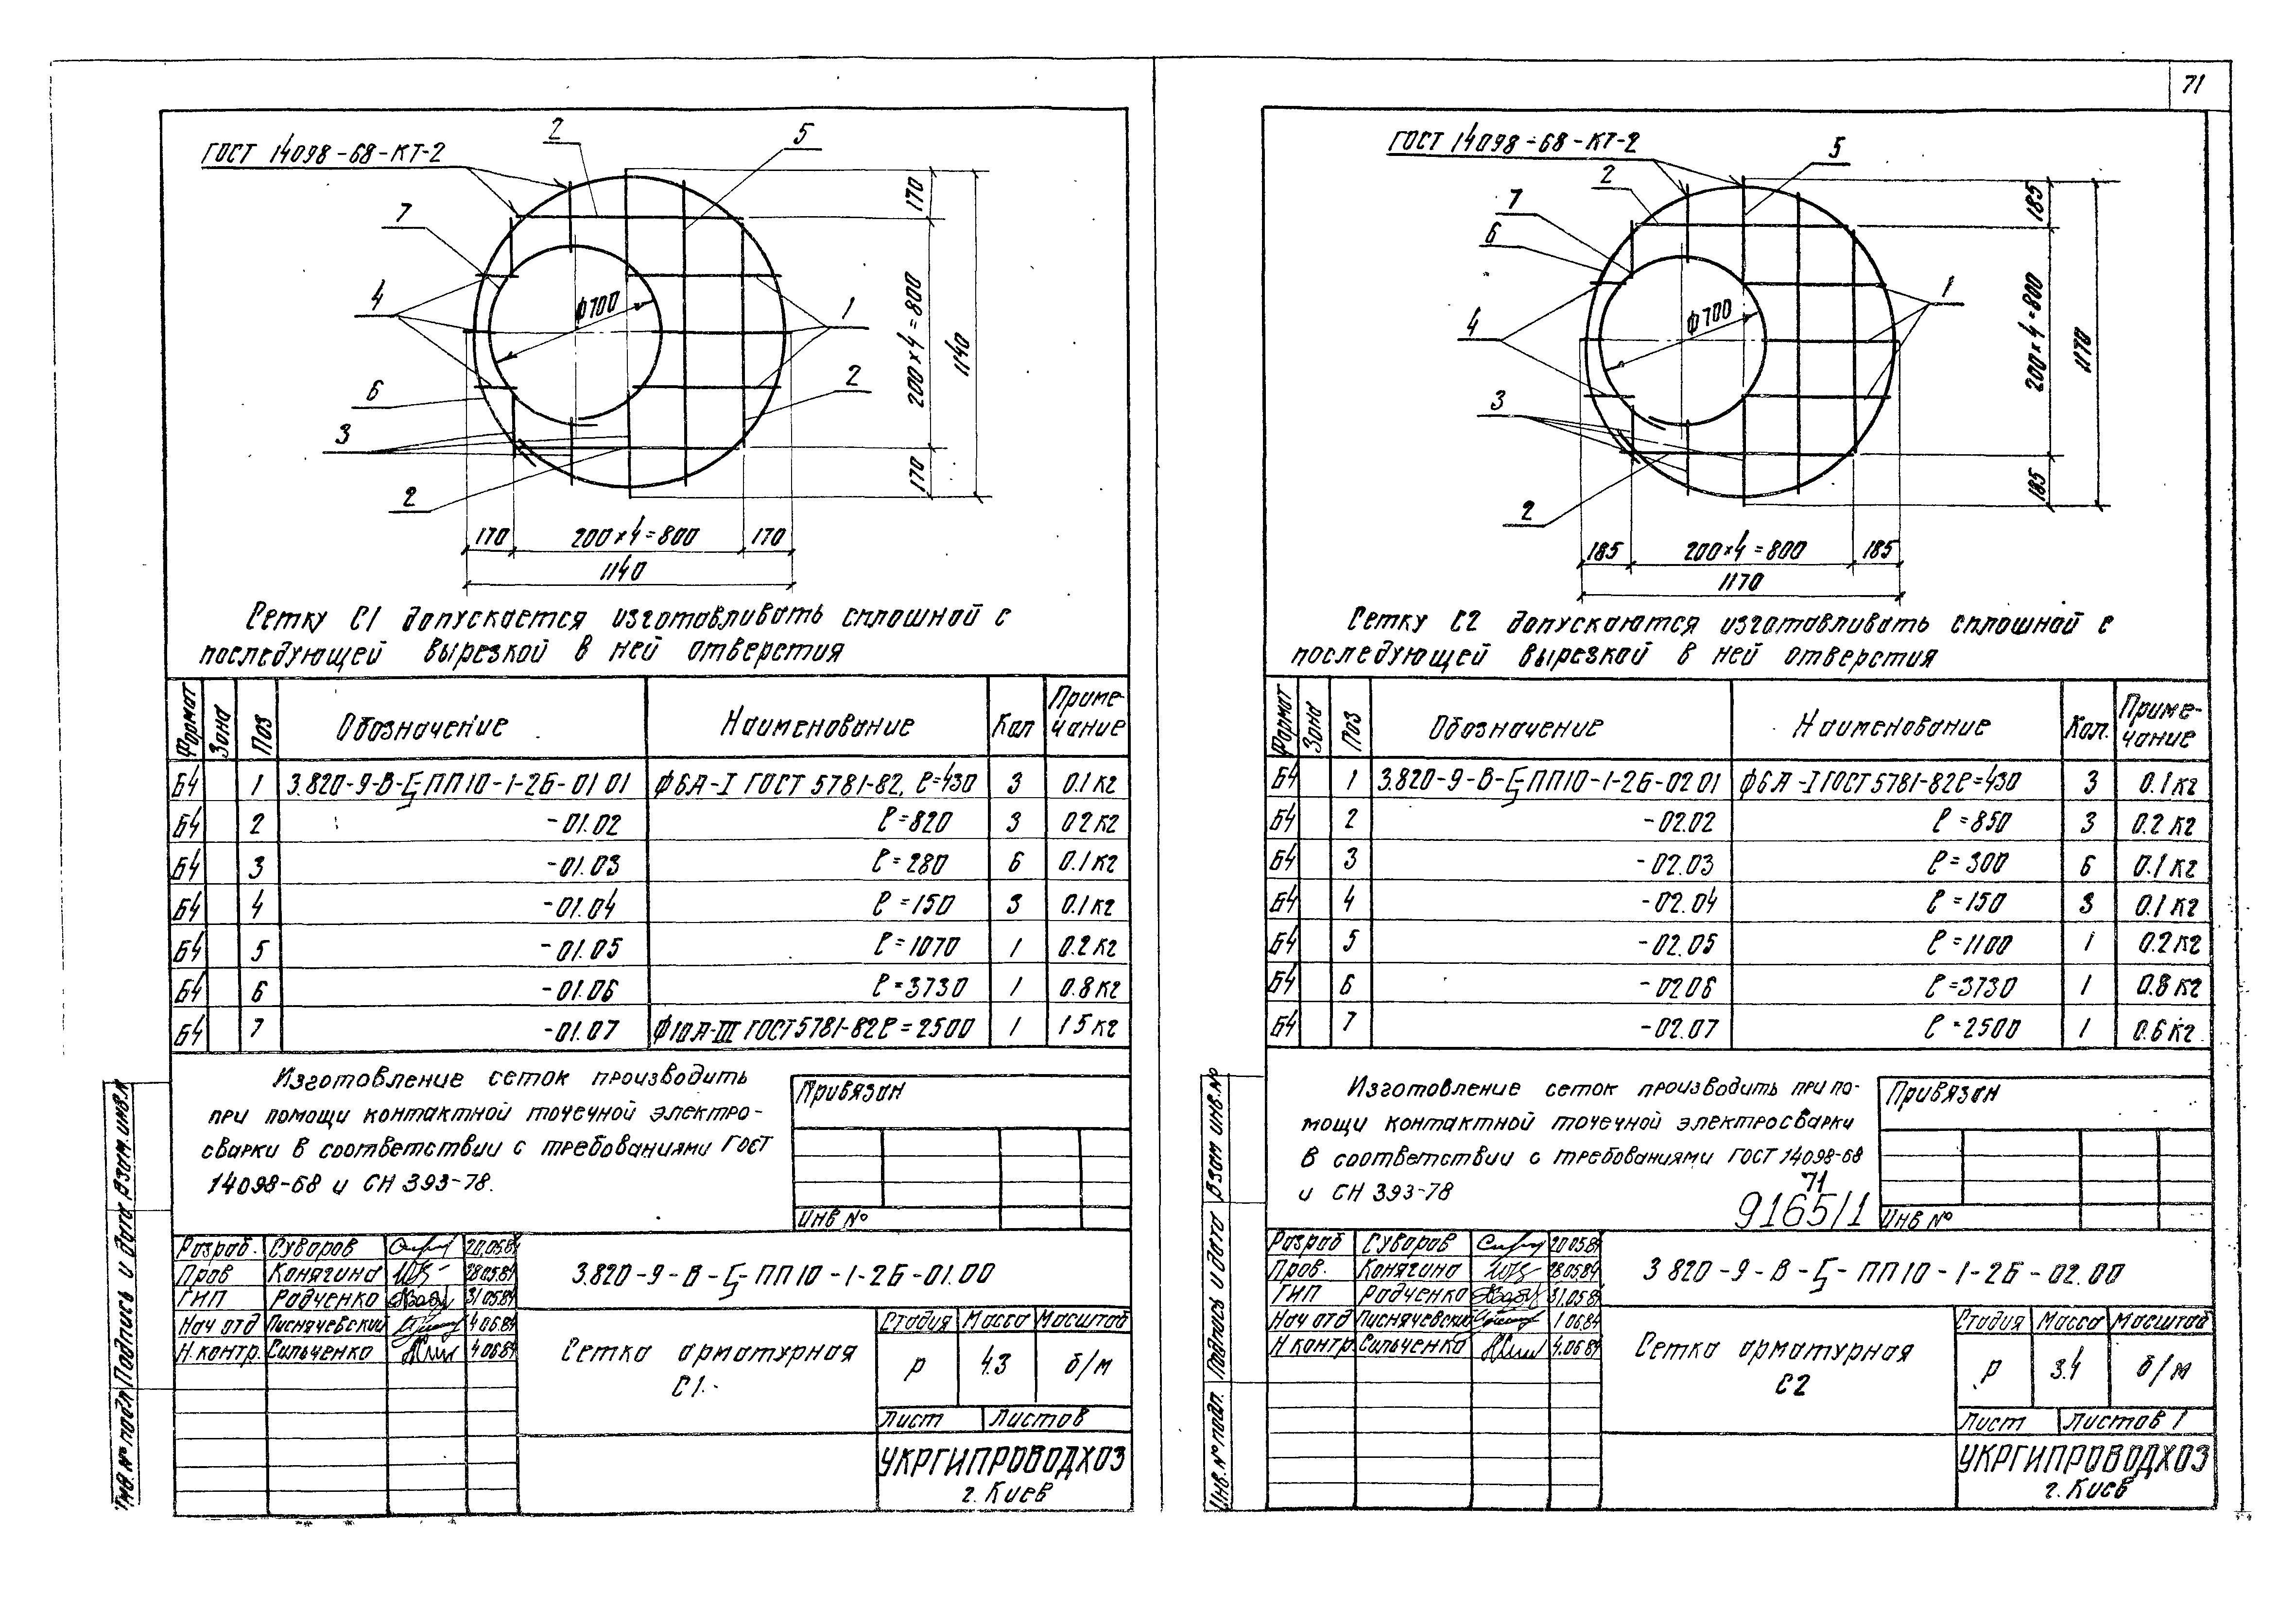 71
ГОСТ 14098-68-КТ-2
2
5
7
4
6
3
2
1
2
ф700
170
200×4=800
170
1140
170
200×4=800
170
1140
Сетку С1 допускается изготавливать сплошной с
последующей вырезкой в ней отверстия
Формат Зона Поз Обозначение Наименование Кол Приме-чание
Б4 1 3.820-9-В-Ц-ПП10-1-2Б-01 01 ф6А-I ГОСТ 5781-82, ℓ=430 3 0.1 кг
Б4 2 -01.02 ℓ=820 3 02 кг
Б4 3 -01.03 ℓ=280 6 0.1 кг
Б4 4 -01.04 ℓ=150 3 0.1 кг
Б4 5 -01.05 ℓ=1070 1 0.2 кг
Б4 6 -01.06 ℓ=3730 1 0.8 кг
Б4 7 -01.07 ф10А-III ГОСТ 5781-82 ℓ=2500 1 1 5 кг
Изготовление сеток производить
при помощи контактной точечной электро-
сварки в соответствии с требованиями ГОСТ
14098-68 и СН 393-78.
Привязан
Инв №
Разраб. Суворов 20.05.84
Пров Конягина 28.05.84
ГИП Радченко 31.05.84
Нач отд Писнячевский 4.06.84
Н.контр. Сильченко 4.06.84
3.820-9-В-Ц-ПП10-1-2Б-01.00
Сетка арматурная
С1.
Стадия Масса Масштаб
Р 4.3 б/м
Лист Листов
УКРГИПРОВОДХОЗ
г. Киев
Инв № подл Подпись и дата Взам.инв.№
ГОСТ 14098-68-КТ-2
5
2
7
6
4
3
2
1
ф700
185
200×4=800
185
1170
185
200×4=800
185
1170
Сетку С2 допускаются изготавливать сплошной с
последующей вырезкой в ней отверстия
Формат Зона Поз Обозначение Наименование Кол. Приме-чание
Б4 1 3.820-9-В-Ц-ПП10-1-2Б-02 01 ф6А-I ГОСТ 5781-82 ℓ=430 3 0.1 кг
Б4 2 -02.02 ℓ=850 3 0.2 кг
Б4 3 -02.03 ℓ=300 6 0.1 кг
Б4 4 -02.04 ℓ=150 3 0.1 кг
Б4 5 -02.05 ℓ=1100 1 0.2 кг
Б4 6 -02 06 ℓ=3730 1 0.8 кг
Б4 7 -02.07 ℓ=2500 1 0.6 кг
Изготовление сеток производить при по-
мощи контактной точечной электросварки
в соответствии с требованиями ГОСТ 14098-68
и СН 393-78
71
9165/1
Привязан
Инв №
Разраб Суворов 20 05.84
Пров. Конягина 28.05.84
ГИП Радченко 31.05.84
Нач отд Писнячевский 1 06.84
Н контр Сильченко 4.06.84
3 820-9-В-Ц-ПП10-1-2Б-02.00
Сетка арматурная
С2
Стадия Масса Масштаб
Р 3.4 б/м
Лист Листов 1
УКРГИПРОВОДХОЗ
г. Киев
Инв.№ подл. Подпись и дата Взам инв.№